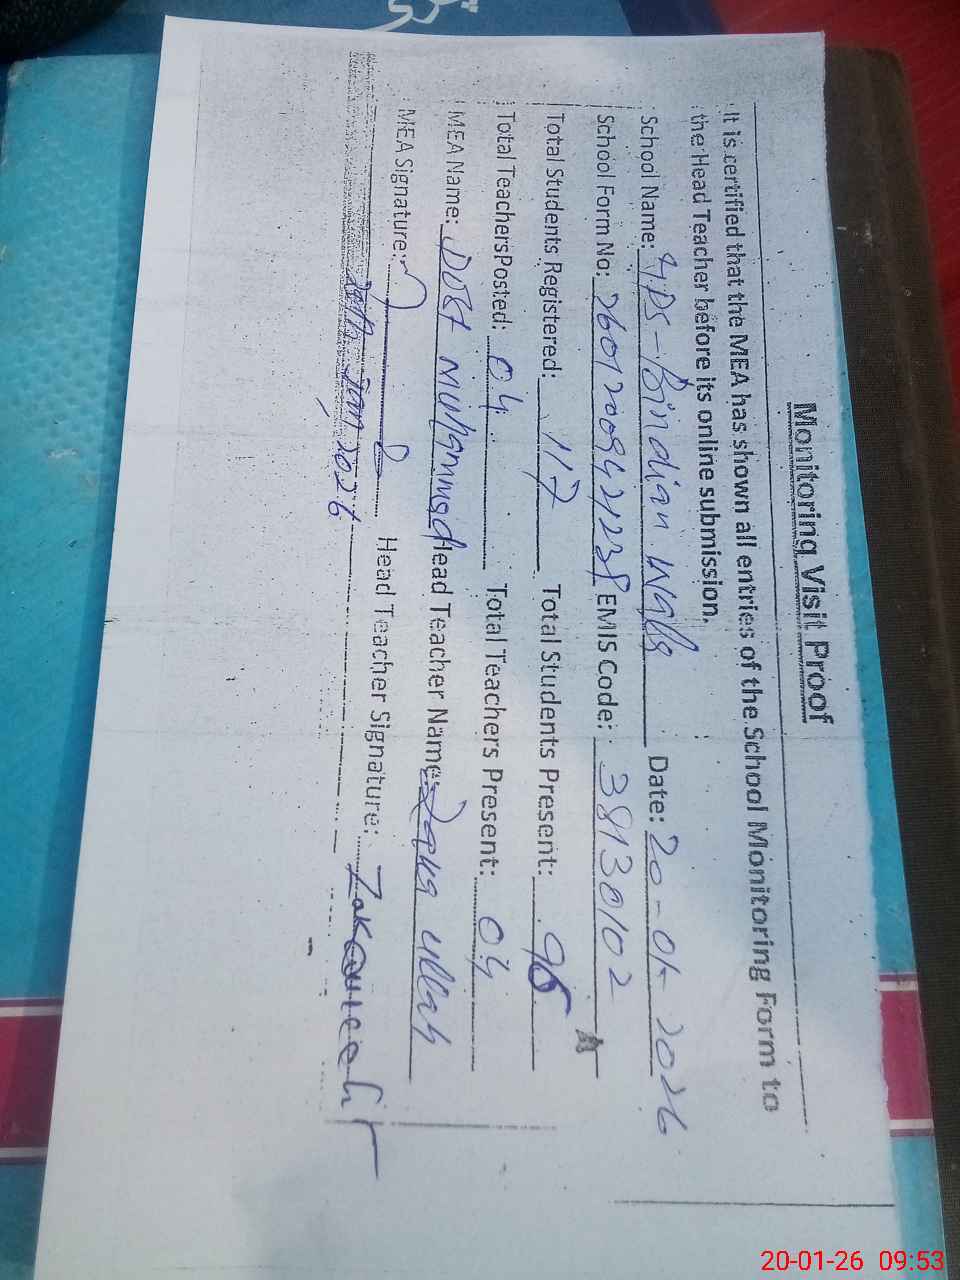 Monitoring Visit Proof
It is certified that the MEA has shown all entries of the School Monitoring Form to
the Head Teacher before its online submission.
School Name: GPS-Bindian Wala Date: 20-01-2026
School Form No: EMIS Code: 38130102
Total Students Registered: 117 Total Students Present: 96
Total TeachersPosted: 04 Total Teachers Present: 04
MEA Name: Dost Muhammad Head Teacher Name: Zaka ullah
MEA Signature: Head Teacher Signature: Zakaullah
20th Jan, 2026
20-01-26 09:53